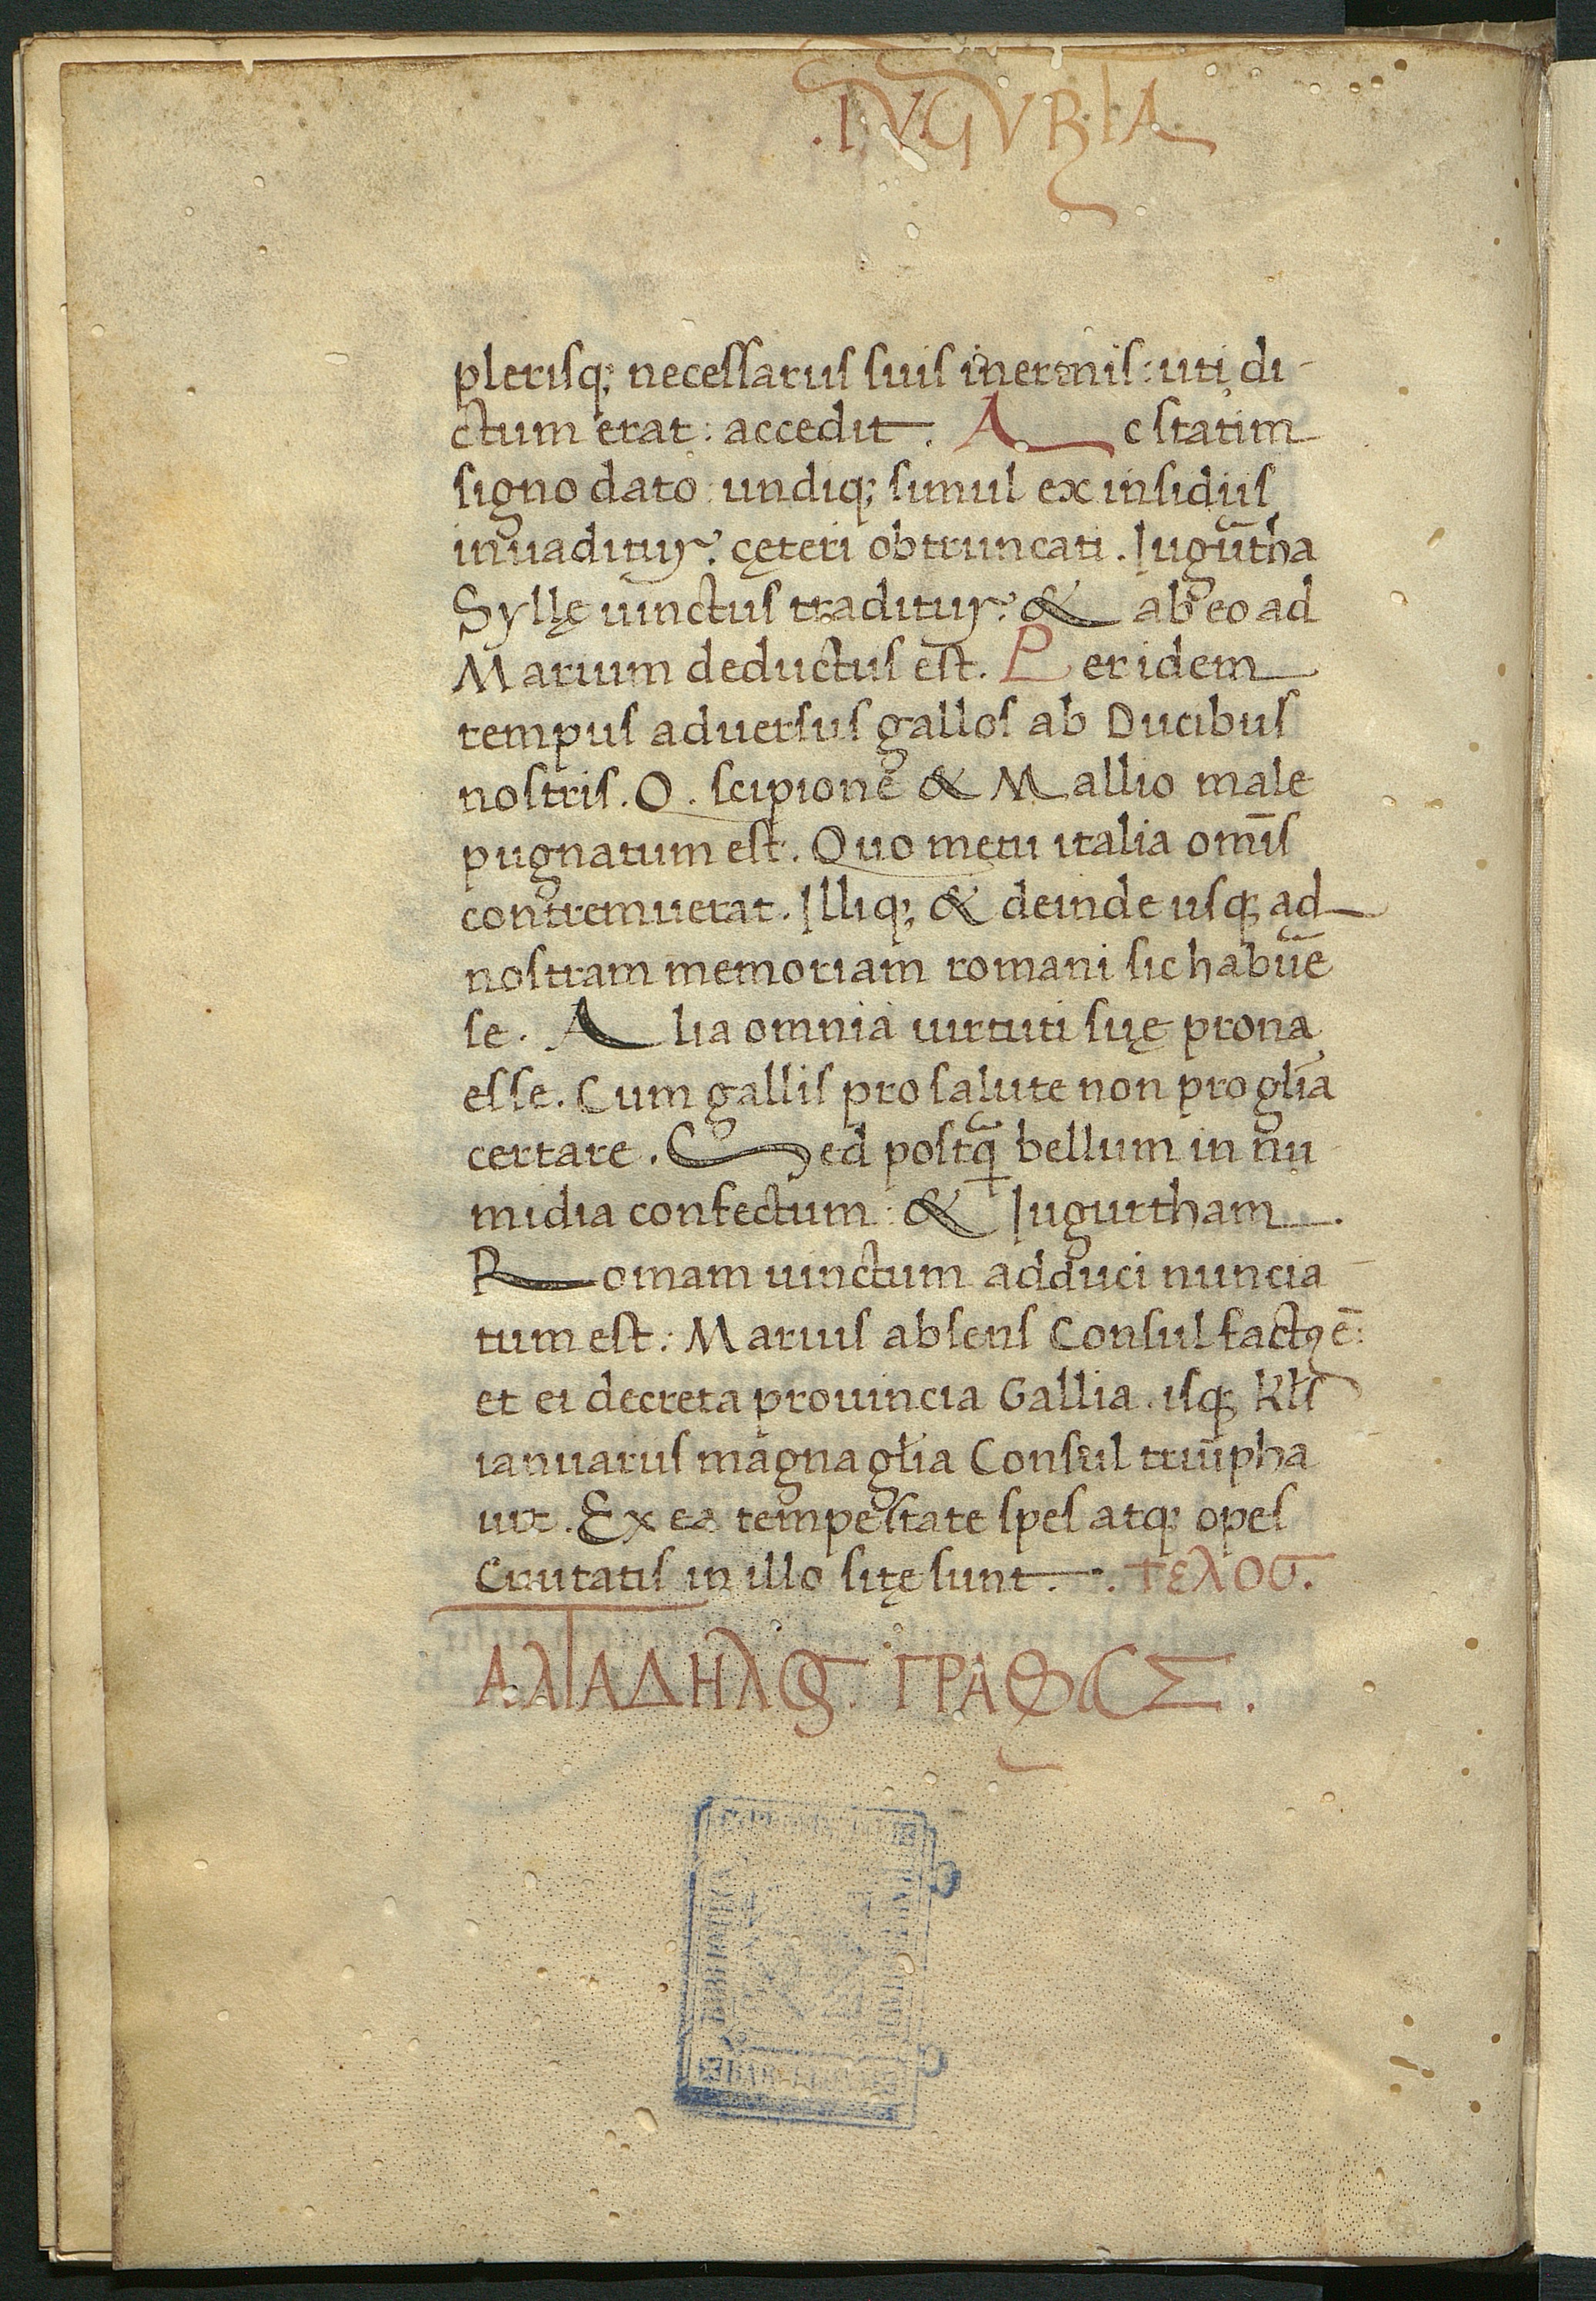 .IVGVRTA
plerisq; necessariis suis inermis: uti di-
ctum erat: accedit. Ac statim
signo dato undiq; simul ex insidiis
inuaditur: cęteri obtruncati. Iugurtha
Syllę uinctus traditur: & ab eo ad
Marium deductus est. Per idem
tempus aduersus gallos ab Ducibus
nostris. Q. scipione & Mallio male
pugnatum est. Quo metu italia om̄is
contremuerat. Illiq; & deinde usq; ad
nostram memoriam romani sic habūe
se. Alia omnia uirtuti suę prona
esse. Cum gallis pro salute non pro glīa
certare. Sed postq̄ bellum in nu
midia confectum: & Iugurtham.
Romam uinctum adduci nuncia-
tum est: Marius absens Consul factꝰ ē:
et ei decreta prouincia Gallia. isq; kl̄s
ianuariis magna glīa Consul triūpha
uit. Ex ea tempestate spes atq; opes
Ciuitatis in illo sitę sunt. τελοσ.
ΓΡΑΦ